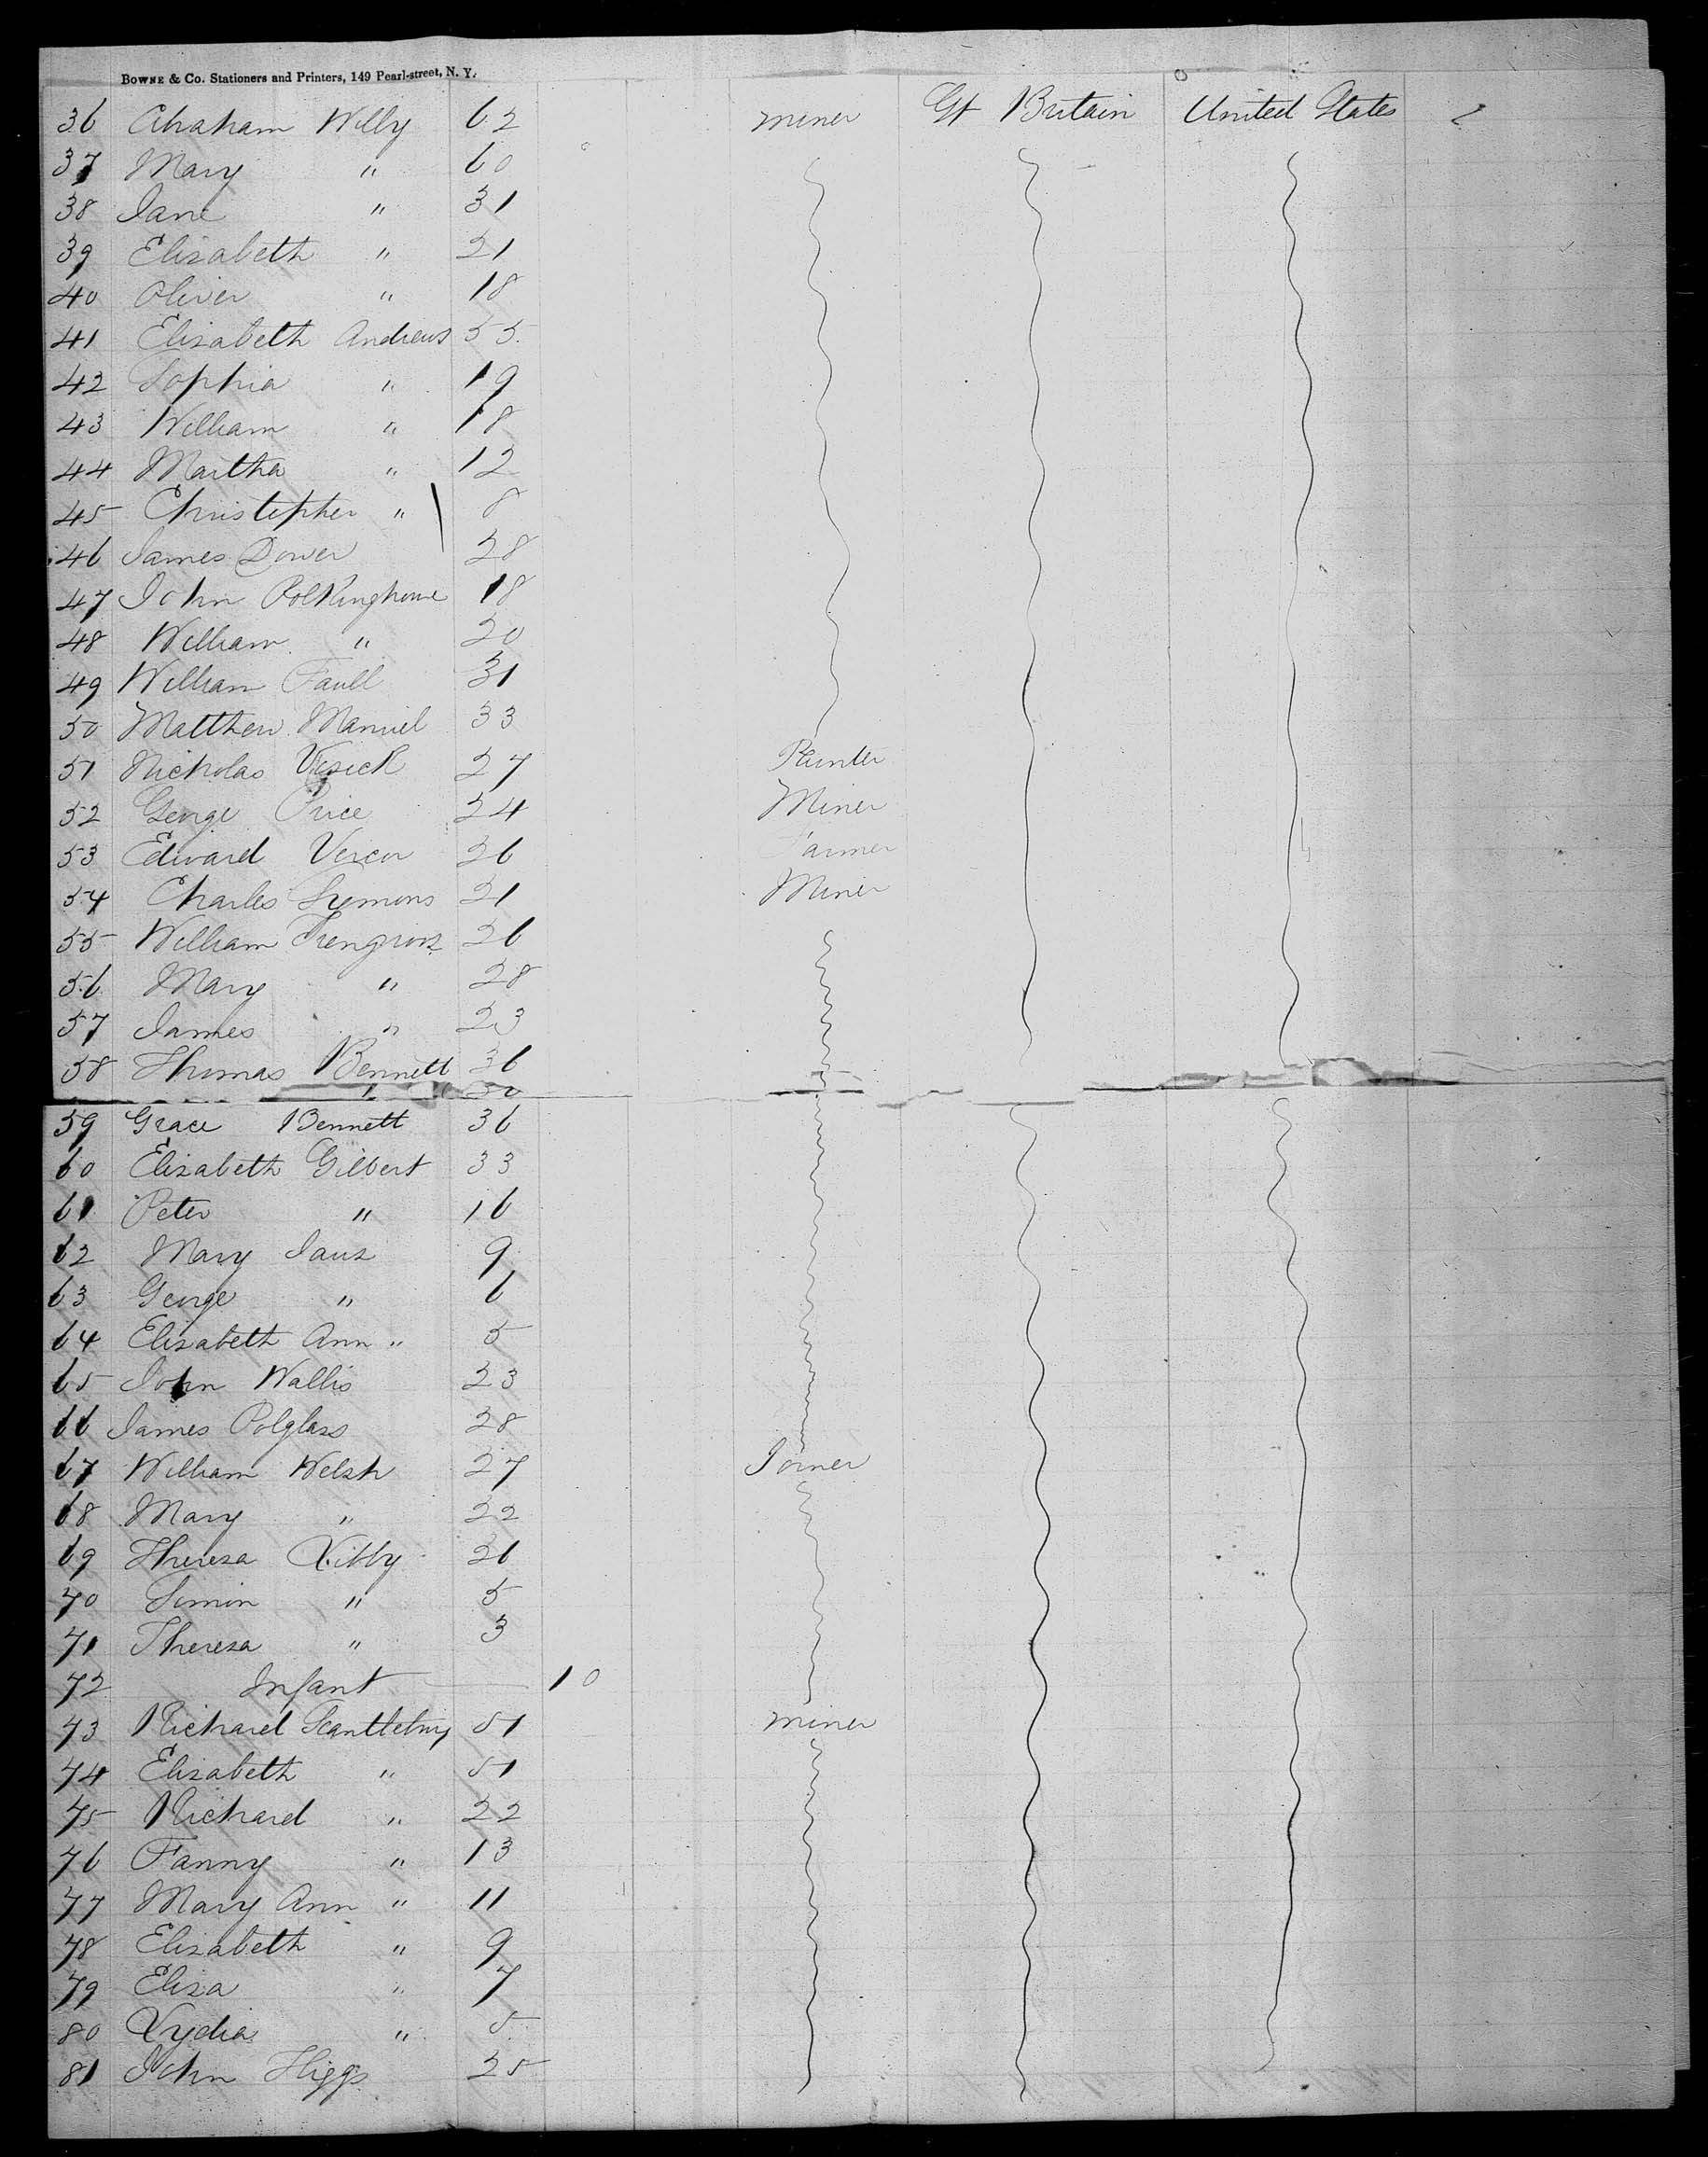 BOWNE & Co. Stationers and Printers, 149 Pearl-street, N. Y.
36 Abraham Willy 62 miner Gt Britain United States
37 Mary " 60
38 Jane " 31
39 Elizabeth " 21
40 Oliver " 18
41 Elizabeth Andrews 55
42 Sophia " 19
43 William " 18
44 Martha " 12
45 Christopher " 8
46 James Dower 28
47 John Polkinghorne 18
48 William " 20
49 William Faull 31
50 Matthew Manuel 33
51 Nicholas 27
52 George Price 24 Miner
53 Edward Vercor 26 Farmer
54 Charles Symons 21 Miner
55 William Trengrove 26
56 Mary " 28
57 James " 23
58 Thomas Bennett 36
59 Grace Bennett 36
60 Elizabeth Gilbert 33
61 Peter " 16
62 Mary Jane 9
63 George " 6
64 Elizabeth Ann " 5
65 John Wallis 23
66 James Polglass 28
67 William Welsh 27 Joiner
68 Mary " 22
69 Theresa Libby 26
70 Simon " 5
71 Theresa " 3
72 Infant 10
73 Richard Scantlebury 51 miner
74 Elizabeth " 51
75 Richard " 22
76 Fanny " 13
77 Mary Ann " 11
78 Elizabeth " 9
79 Eliza " 7
80 Lydia " 5
81 John Higgs 25